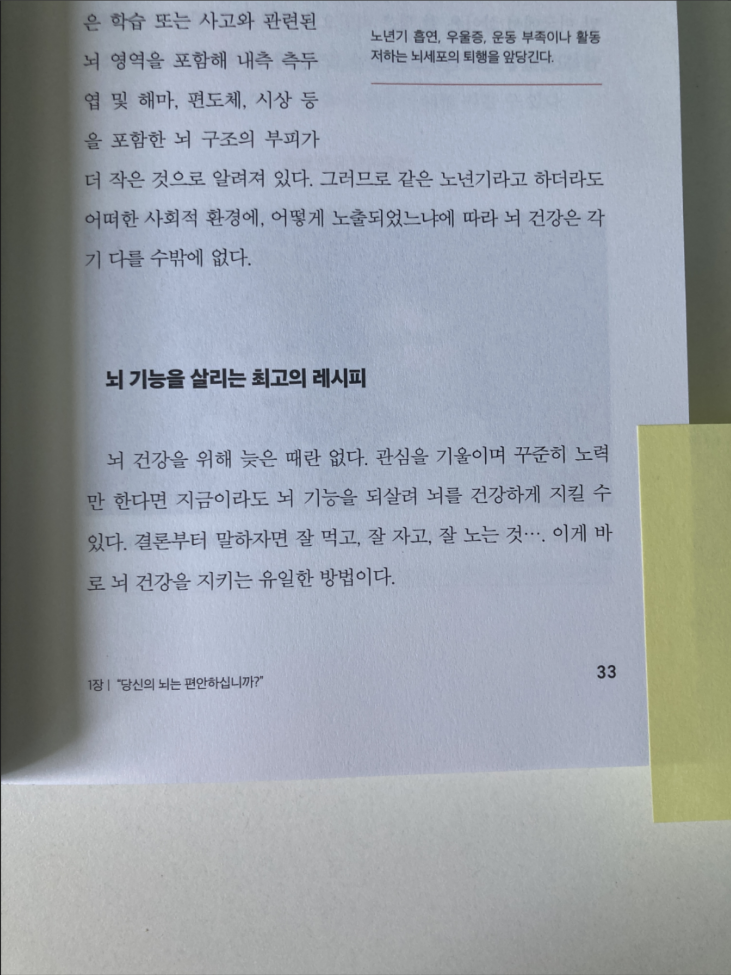 은 학습 또는 사고와 관련된
뇌 영역을 포함해 내측 측두
엽 및 해마, 편도체, 시상 등
을 포함한 뇌 구조의 부피가
노년기 흡연, 우울증, 운동 부족이나 활동
저하는 뇌세포의 퇴행을 앞당긴다.
더 작은 것으로 알려져 있다. 그러므로 같은 노년기라고 하더라도
어떠한 사회적 환경에, 어떻게 노출되었느냐에 따라 뇌 건강은 각
기 다를 수밖에 없다.
뇌 기능을 살리는 최고의 레시피
뇌 건강을 위해 늦은 때란 없다. 관심을 기울이며 꾸준히 노력
만 한다면 지금이라도 뇌 기능을 되살려 뇌를 건강하게 지킬 수
있다. 결론부터 말하자면 잘 먹고, 잘 자고, 잘 노는 것…. 이게 바
로 뇌 건강을 지키는 유일한 방법이다.
1장 | “당신의 뇌는 편안하십니까?”
33